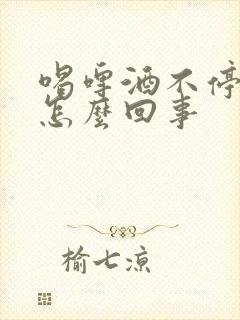 喝啤酒不停
怎麼回事
榆七涼